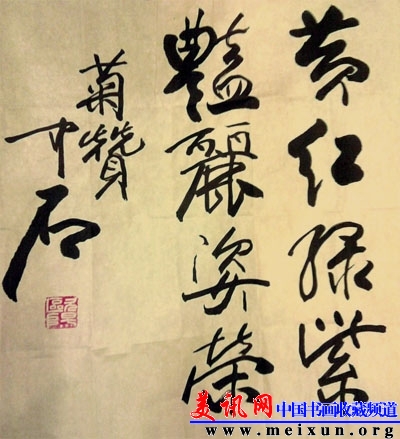 黄红绿紫
艳丽姿荣
菊赞
中石
美讯网 中国书画收藏频道
www.meixun.org